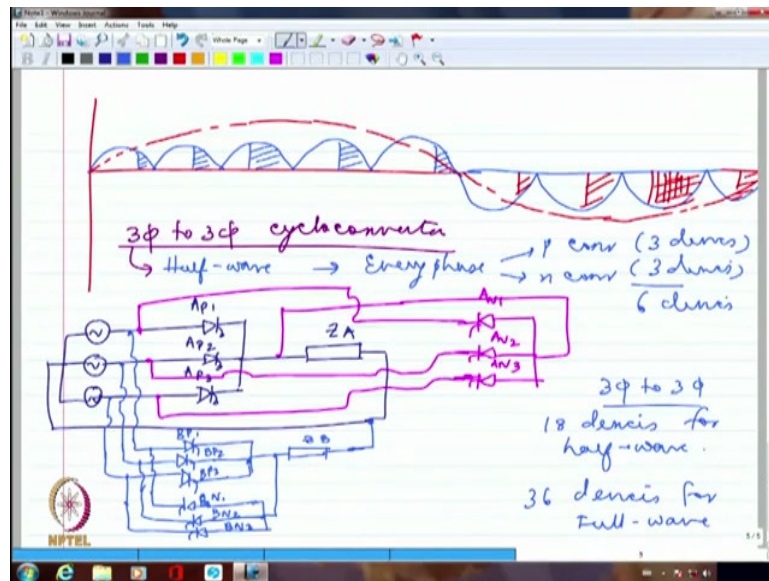 Note1 - Windows Journal
File Edit View Insert Actions Tools Help
Whole Page
B
3φ to 3φ cycloconverter
Half-wave → Every phase → p conv (3 devices)
→ n conv (3 devices)
6 devices
AP1
AP2
AP3
ZA
AN1
AN2
AN3
3φ to 3φ
18 devices for
half-wave.
36 devices for
Full-wave
BP1
BP2
BP3
BN1
BN2
BN3
ZB
NPTEL
5/5
3